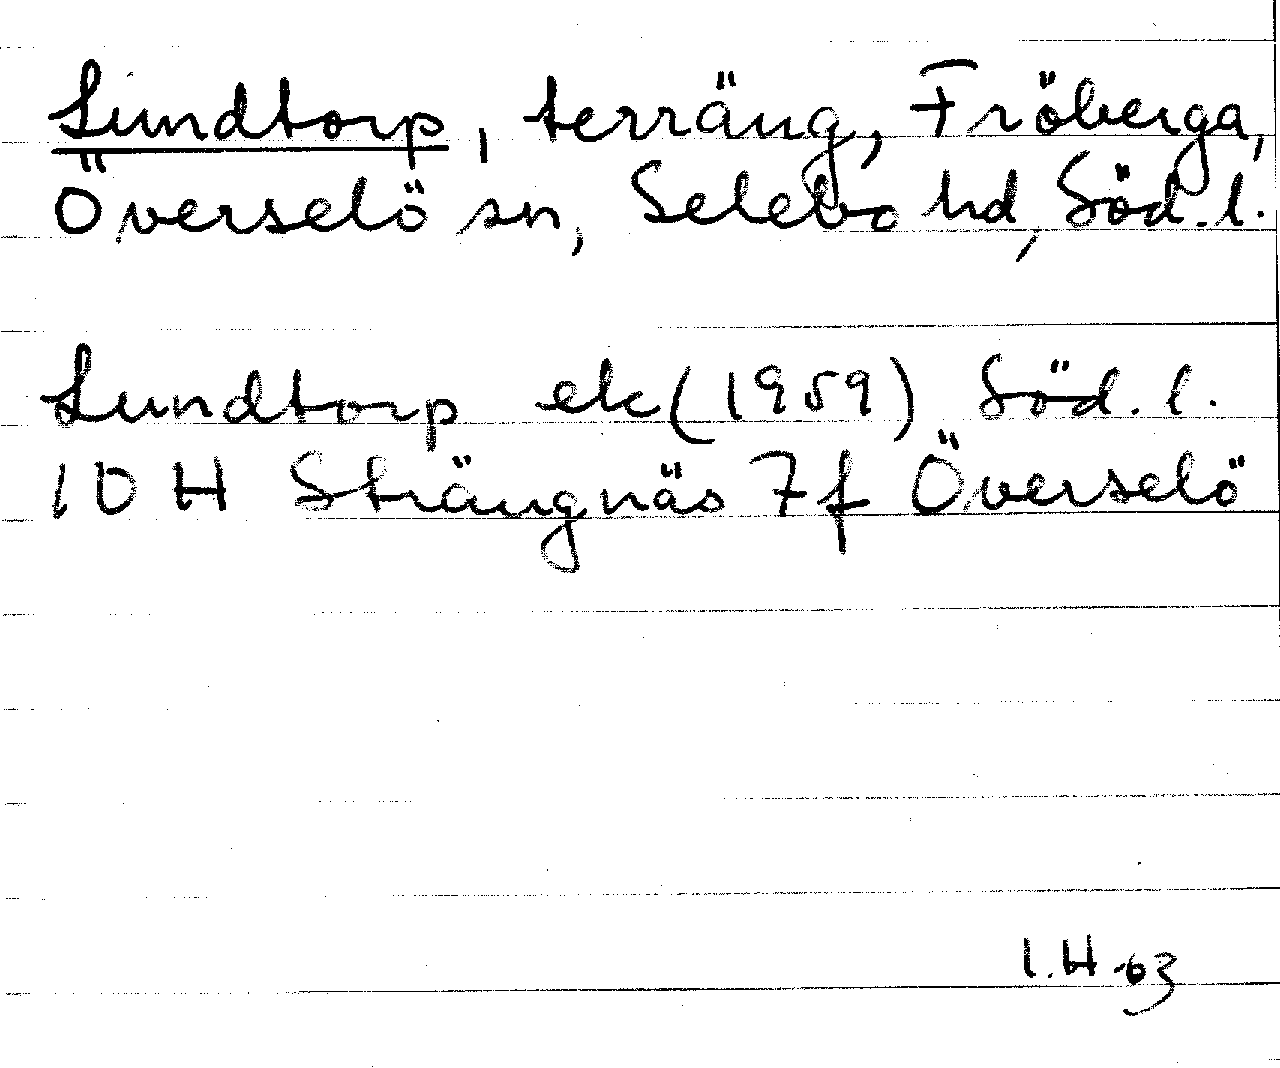 Lundtorp, terräng, Fröberga,
Överselö sn, Selebo hd, Söd. l.
Lundtorp ek (1959) Söd. l.
10 H Strängnäs 7f Överselö
I. H -63